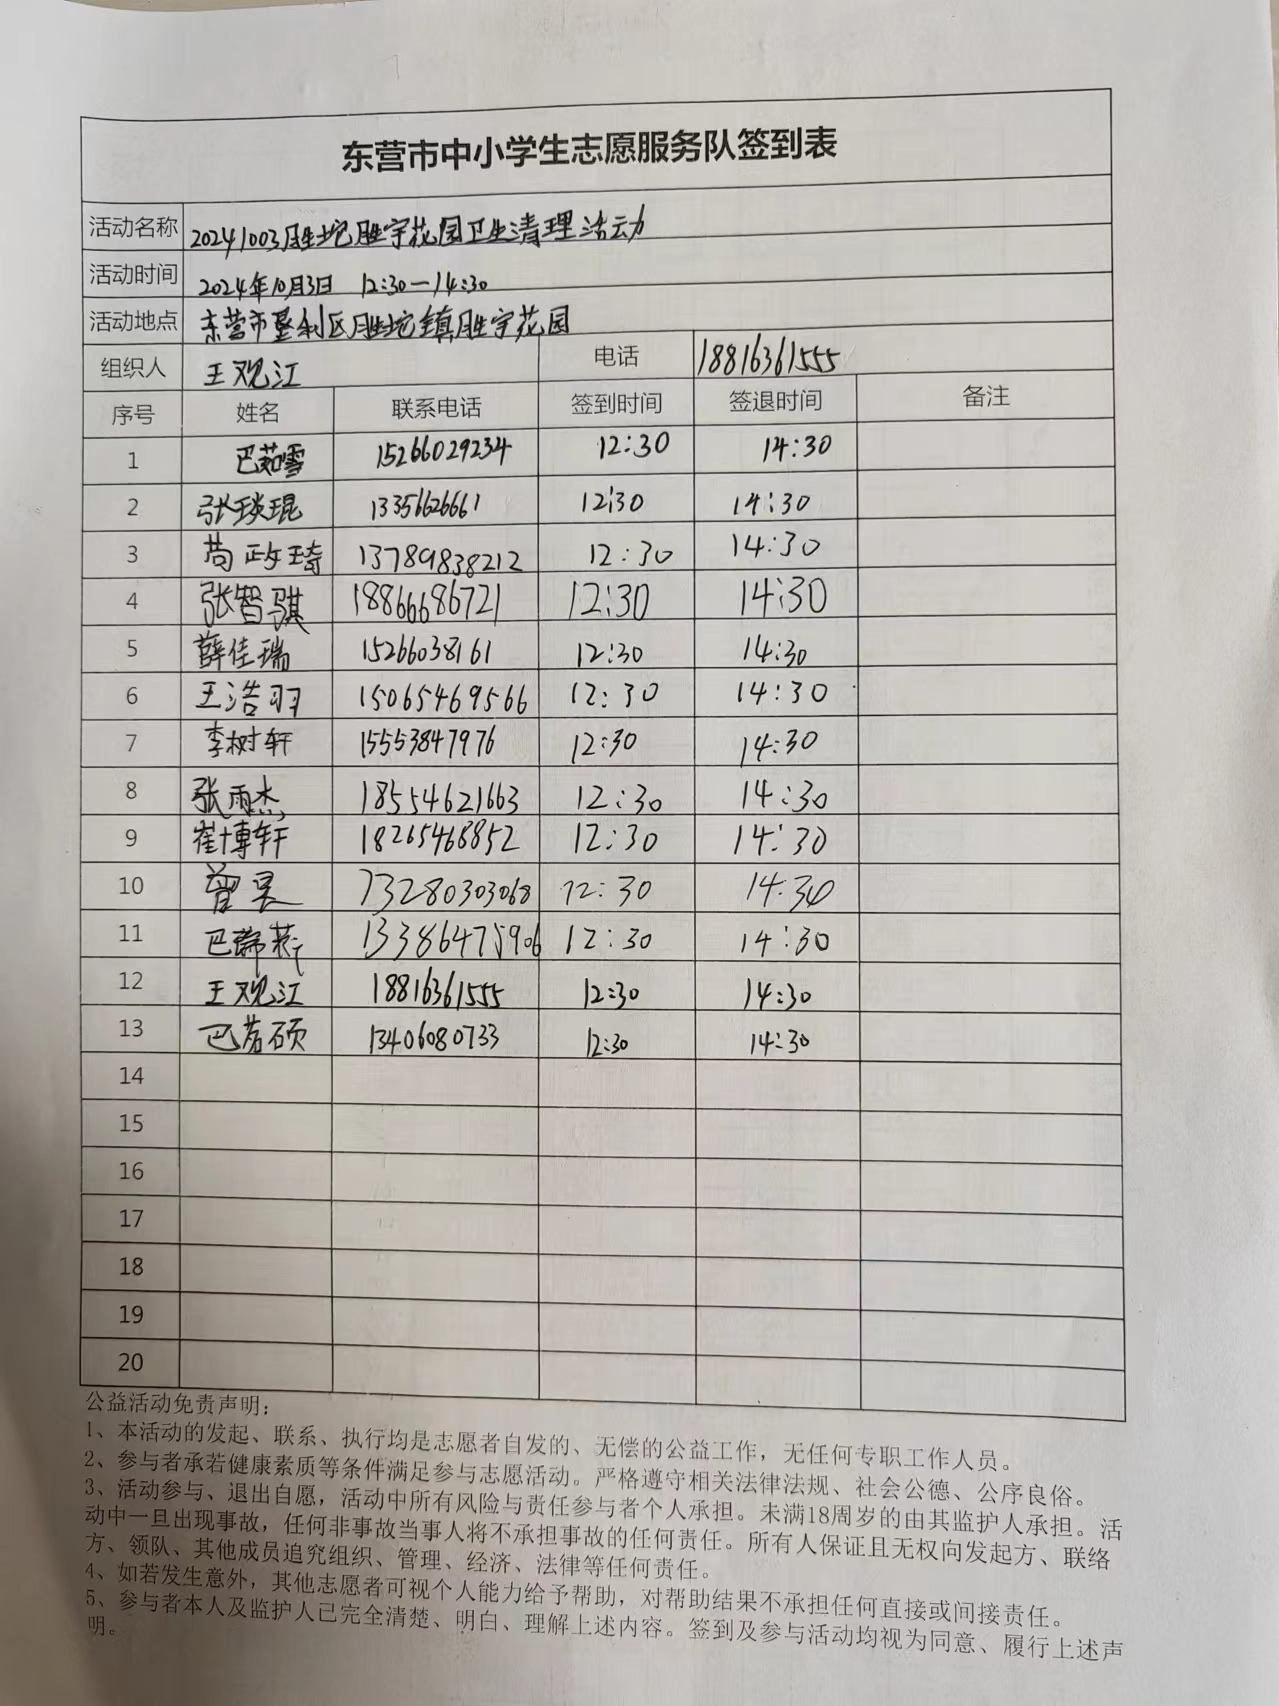 东营市中小学生志愿服务队签到表
活动名称 20241003胜坨胜宇花园卫生清理活动
活动时间 2024年10月3日 12:30—14:30
活动地点 东营市垦利区胜坨镇胜宇花园
组织人 王观江 电话 18816361555
序号 姓名 联系电话 签到时间 签退时间 备注
1 巴茹雪 15266029234 12:30 14:30
2 张琰琨 13356626661 12:30 14:30
3 苟政琦 13789838212 12:30 14:30
4 张智骐 18866686721 12:30 14:30
5 薛佳瑞 15266038161 12:30 14:30
6 王浩羽 15065469566 12:30 14:30
7 李树轩 15553847976 12:30 14:30
8 张雨杰 18554621663 12:30 14:30
9 崔博轩 18265468852 12:30 14:30
10 曾昊 13280303068 12:30 14:30
11 巴瑞 13386475906 12:30 14:30
12 王观江 18816361555 12:30 14:30
13 巴若硕 13406080733 12:30 14:30
14
15
16
17
18
19
20
公益活动免责声明：
1、本活动的发起、联系、执行均是志愿者自发的、无偿的公益工作，无任何专职工作人员。
2、参与者承若健康素质等条件满足参与志愿活动。严格遵守相关法律法规、社会公德、公序良俗。
3、活动参与、退出自愿，活动中所有风险与责任参与者个人承担。未满18周岁的由其监护人承担。活
动中一旦出现事故，任何非事故当事人将不承担事故的任何责任。所有人保证且无权向发起方、联络
方、领队、其他成员追究组织、管理、经济、法律等任何责任。
4、如若发生意外，其他志愿者可视个人能力给予帮助，对帮助结果不承担任何直接或间接责任。
5、参与者本人及监护人已完全清楚、明白、理解上述内容。签到及参与活动均视为同意、履行上述声
明。